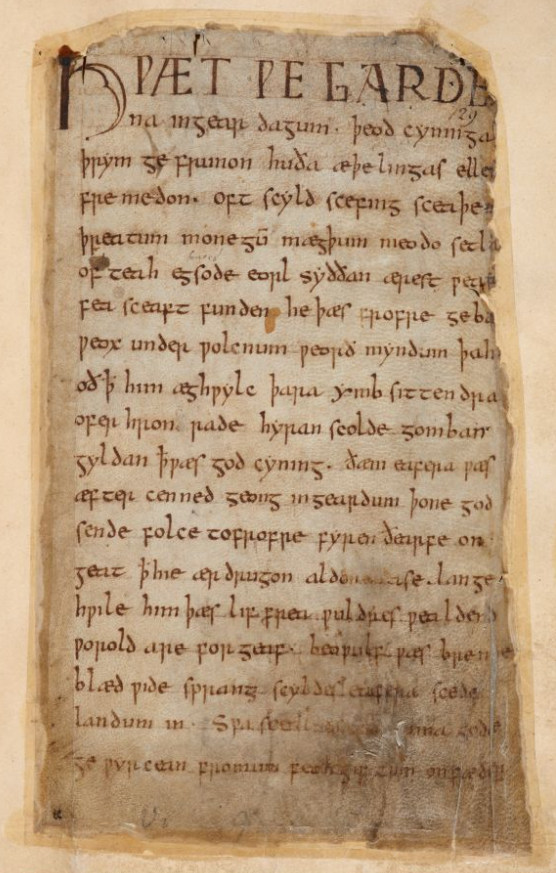 HǷÆT ǷE GARDE
na ingear dagum · þeod cyninga
þrym ge frunon huða æþelingas elle
fremedon · oft scyld scefing sceaþe
þreatum monegū mægþum meodo setla
of teah egsode eorl syððan ærest ƿear
fea sceaft funden he þæs frofre geba
ƿeox under ƿolcnum ƿeorð myndum þah
oð ꝥ him æghƿylc þara ymb sittendra
ofer hron rade hyran scolde gomban
gyldan ꝥ ƿæs god cyning · ðæm eafera ƿæs
æfter cenned geong ingeardum þone god
sende folce tofrofre fyren ðearfe on
geat ꝥ hie ær drugon aldor ase lange
hƿile him þæs lif frea ƿuldres ƿealdend
ƿorold are forgeaf · beoƿulf ƿæs breme
blæd ƿide sprang scyldes eafera scede
landum in · Sƿa sceal guma gode
ge ƿyrcean fromum feoh giftum on fæder
129